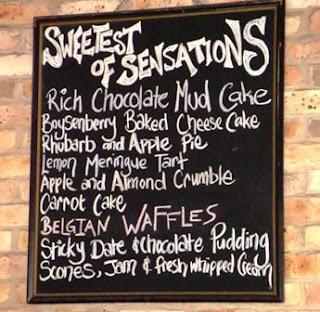 SWEETEST
OF SENSATIONS
Rich Chocolate Mud Cake
Boysenberry Baked Cheese Cake
Rhubarb and Apple Pie
Lemon Meringue Tart
Apple and Almond Crumble
Carrot Cake
BELGIAN WAFFLES
Sticky Date & Chocolate Pudding
Scones, Jam & fresh whipped Cream